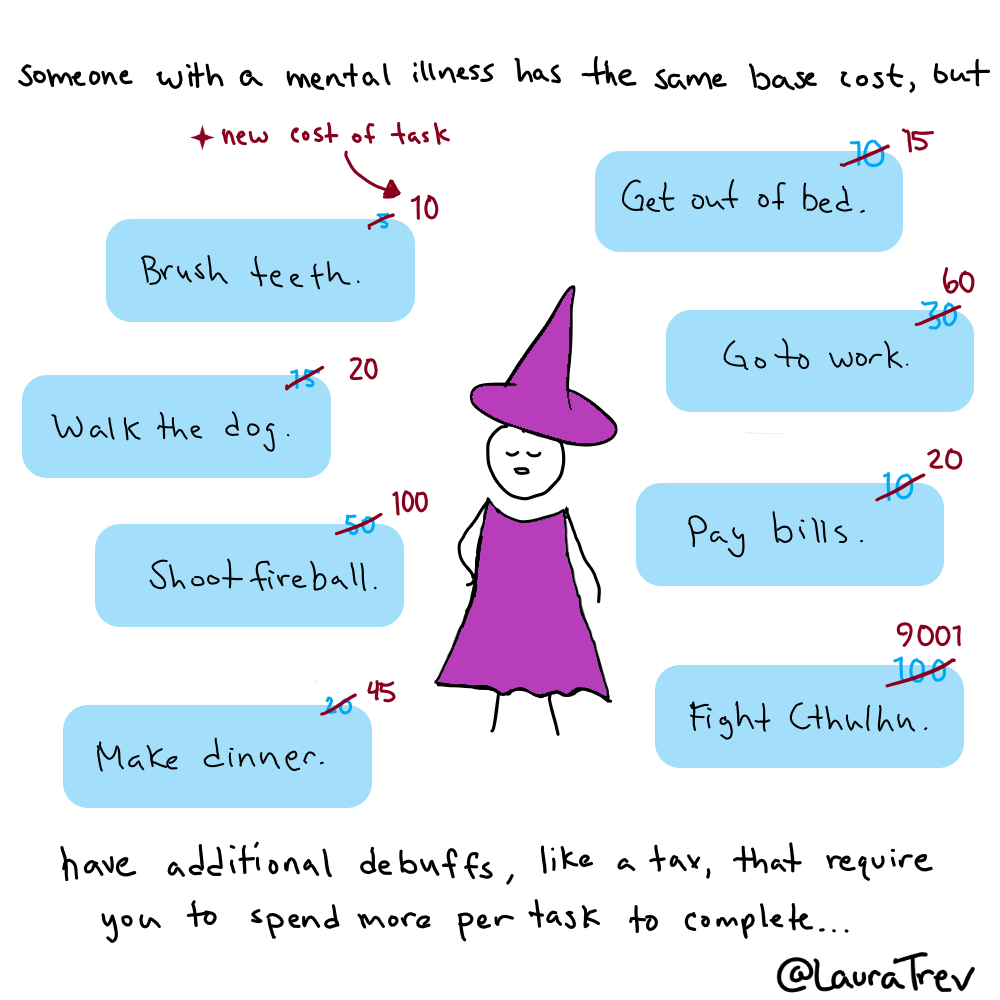 someone with a mental illness has the same base cost, but
+ new cost of task
5 10
Brush teeth.
10 15
Get out of bed.
30 60
Go to work.
15 20
Walk the dog.
10 20
Pay bills.
50 100
Shoot fireball.
100 9001
Fight Cthulhu.
20 45
Make dinner.
have additional debuffs, like a tax, that require
you to spend more per task to complete...
@LauraTrev